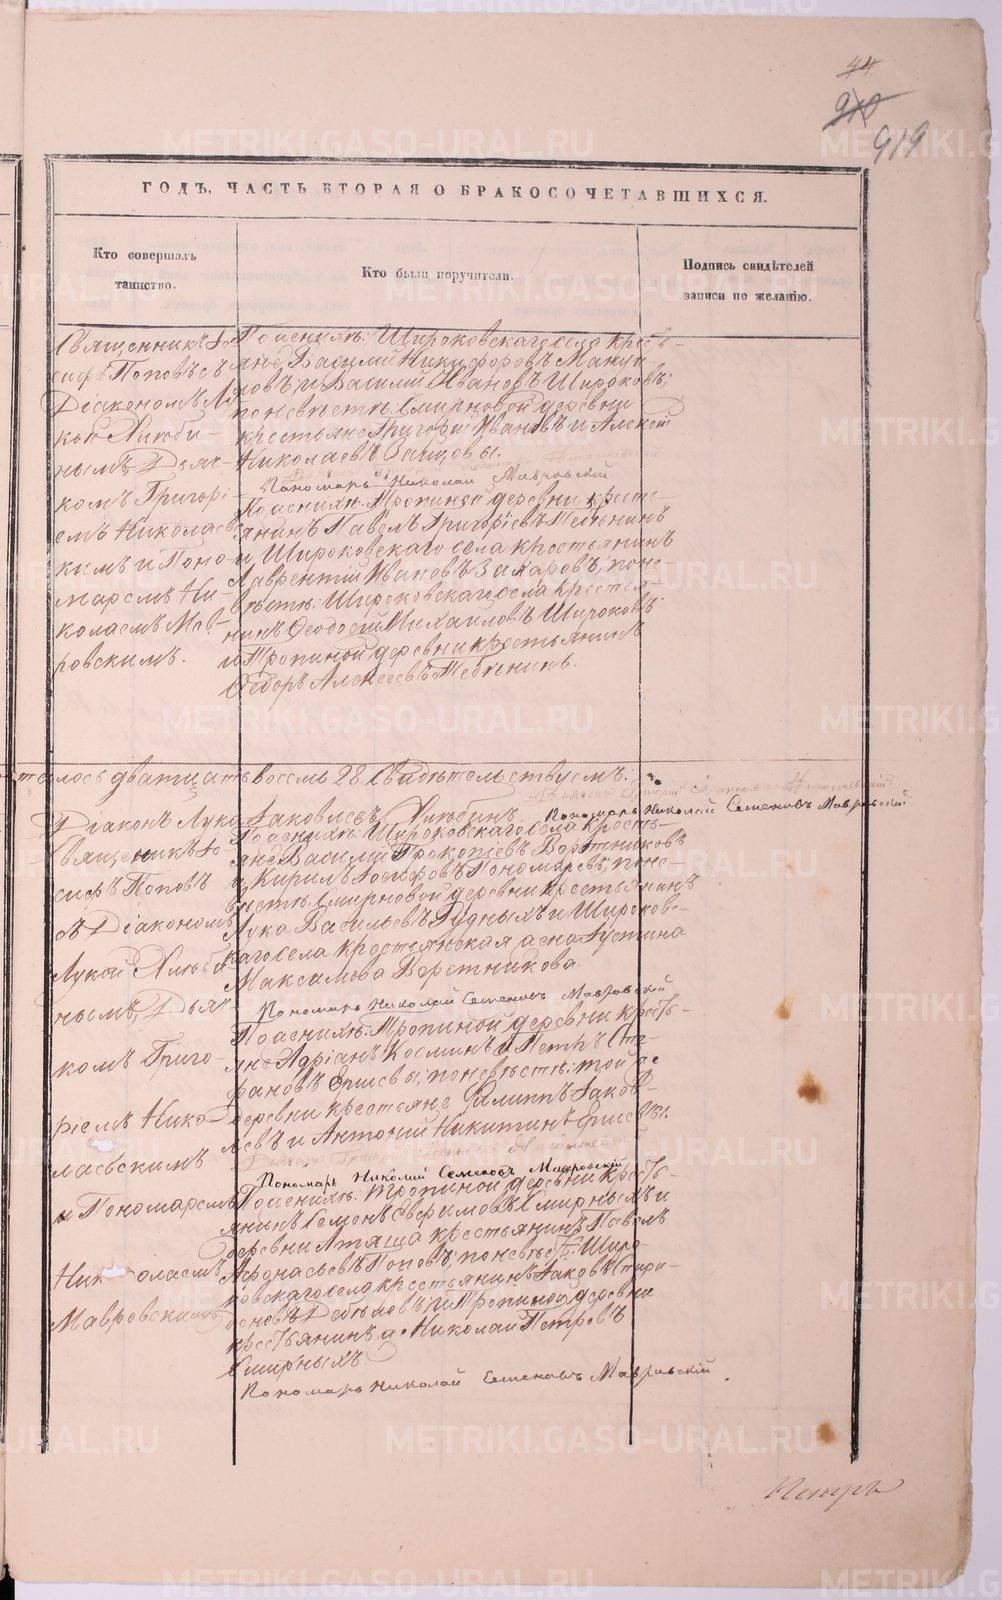 44
910
919
ГОДЪ, ЧАСТЬ ВТОРАЯ О БРАКОСОЧЕТАВШИХСЯ.
Кто совершалъ
таинство.
Кто были поручители.
Подпись свидѣтелей
записи по желанію.
Священникъ Іо-
сифъ Поповъ съ
Діакономъ Лу-
кой Люби-
нымъ Дьяч-
комъ Григорі-
емъ Николаевс-
кимъ и Поно-
маремъ Ни-
колаемъ Мав-
ровскимъ.
По женихѣ: Широковскаго села кресть-
яне Василій Никифоровъ
и Василій Ивановъ Широковъ;
по невѣстѣ: Смирновой деревни
крестьяне Григорій Ивановъ и Алексѣй
Николаевъ Зайцовы.
Пономарь Николай Мавровскій
По женихѣ: Тропиной деревни кресть-
янинъ Павелъ Григорьевъ
и Широковскаго села крестьянинъ
Лаврентій Ивановъ Захаровъ; по не-
вѣстѣ: Широковскаго села крестья-
нинъ Ѳеодосій Михайловъ Широковъ
и Тропиной деревни крестьянинъ
Ѳедоръ Алексеевъ
талось дватцать восемь 28. Свидѣтельствуемъ.
Діаконъ Лука Іаковлевъ Любинъ.
Пономарь Николай Семеновъ Мавровскій
Священикъ Іо-
сифъ Поповъ
съ Діакономъ
Лукой Люби-
нымъ, Дьяч-
комъ Григо-
ріемъ Нико-
лаевскимъ
и Пономаремъ
Николаемъ
Мавровскимъ
По женихѣ: Широковскаго села кресть-
яне Василій Прокопіевъ Воротниковъ
и Кирилъ Пономаревъ; по не-
вѣстѣ: Смирновой деревни крестьянинъ
Лука Васильевъ Рудныхъ и Широковс-
каго села крестьянская жена Устина
Максимова Воротникова.
Пономарь Николай Семеновъ Мавровскій
По женихѣ: Тропиной деревни кресть-
яне Адріанъ Косминъ и Петръ Сте-
фановъ Ершевы; по невѣстѣ: той же
деревни крестьяне Филиппъ Іаков-
левъ и Антоній Никитинъ Ершевы.
Пономарь Николай Семеновъ Мавровскій
По женихѣ: Тропиной деревни кресть-
янинъ Семенъ Евфимовъ Смирныхъ и
деревни Атяша крестьянинъ Павелъ
Афонасьевъ Поповъ; по невѣстѣ: Широ-
ковскаго села крестьянинъ Іаковъ Спири-
доновъ и Тропиной деревни
крестьянинъ Николай Петровъ
Смирныхъ
Пономарь Николай Семеновъ Мавровскій.
Петръ
METRIKI.GASO-URAL.RU